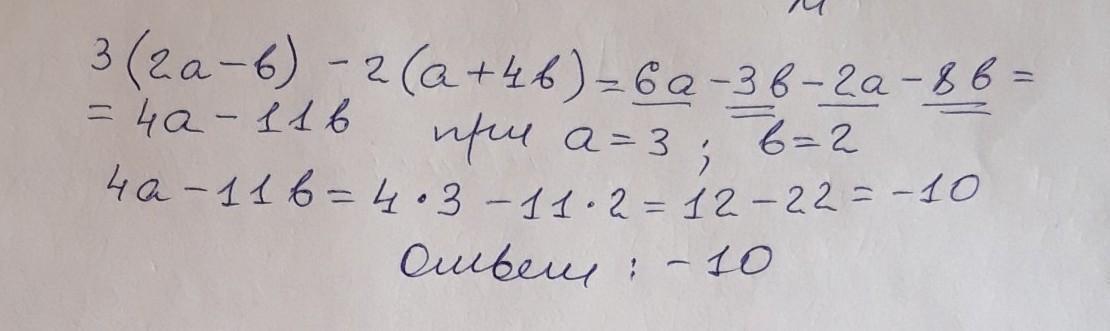 3(2a-b) -2(a+4b)=6a-3b-2a-8b=
=4a-11b при a=3; b=2
4a-11b=4·3-11·2=12-22=-10
Ответ: -10